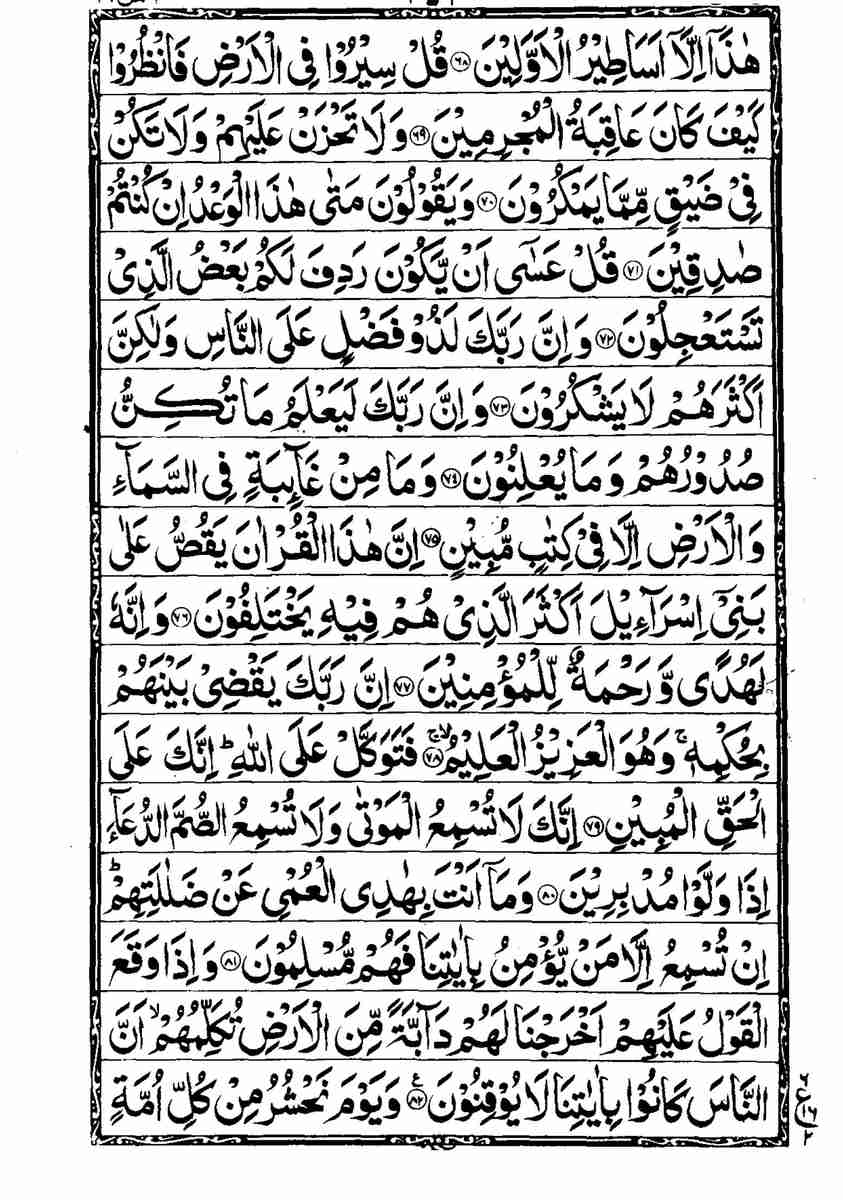 هٰذَاۤ اِلَّاۤ اَسَاطِيْرُ الْاَوَّلِيْنَ ۶۸ قُلْ سِيْرُوْا فِى الْاَرْضِ فَانْظُرُوْا
كَيْفَ كَانَ عَاقِبَةُ الْمُجْرِمِيْنَ ۶۹ وَلَا تَحْزَنْ عَلَيْهِمْ وَلَا تَكُنْ
فِىْ ضَيْقٍ مِّمَّا يَمْكُرُوْنَ ۷۰ وَيَقُوْلُوْنَ مَتٰى هٰذَا الْوَعْدُ اِنْ كُنْتُمْ
صٰدِقِيْنَ ۷۱ قُلْ عَسٰۤى اَنْ يَّكُوْنَ رَدِفَ لَكُمْ بَعْضُ الَّذِىْ
تَسْتَعْجِلُوْنَ ۷۲ وَاِنَّ رَبَّكَ لَذُوْ فَضْلٍ عَلَى النَّاسِ وَلٰكِنَّ
اَكْثَرَهُمْ لَا يَشْكُرُوْنَ ۷۳ وَاِنَّ رَبَّكَ لَيَعْلَمُ مَا تُكِنُّ
صُدُوْرُهُمْ وَمَا يُعْلِنُوْنَ ۷۴ وَمَا مِنْ غَآئِبَةٍ فِى السَّمَآءِ
وَالْاَرْضِ اِلَّا فِىْ كِتٰبٍ مُّبِيْنٍ ۷۵ اِنَّ هٰذَا الْقُرْاٰنَ يَقُصُّ عَلٰى
بَنِىْۤ اِسْرَآءِيْلَ اَكْثَرَ الَّذِىْ هُمْ فِيْهِ يَخْتَلِفُوْنَ ۷۶ وَاِنَّهٗ
لَهُدًى وَّرَحْمَةٌ لِّلْمُؤْمِنِيْنَ ۷۷ اِنَّ رَبَّكَ يَقْضِىْ بَيْنَهُمْ
بِحُكْمِهٖ ۚ وَهُوَ الْعَزِيْزُ الْعَلِيْمُ ۷۸ فَتَوَكَّلْ عَلَى اللّٰهِ ؕ اِنَّكَ عَلَى
الْحَقِّ الْمُبِيْنِ ۷۹ اِنَّكَ لَا تُسْمِعُ الْمَوْتٰى وَلَا تُسْمِعُ الصُّمَّ الدُّعَآءَ
اِذَا وَلَّوْا مُدْبِرِيْنَ ۸۰ وَمَاۤ اَنْتَ بِهٰدِى الْعُمْىِ عَنْ ضَلٰلَتِهِمْ ؕ
اِنْ تُسْمِعُ اِلَّا مَنْ يُّؤْمِنُ بِاٰيٰتِنَا فَهُمْ مُّسْلِمُوْنَ ۸۱ وَاِذَا وَقَعَ
الْقَوْلُ عَلَيْهِمْ اَخْرَجْنَا لَهُمْ دَآبَّةً مِّنَ الْاَرْضِ تُكَلِّمُهُمْ ۙ اَنَّ
النَّاسَ كَانُوْا بِاٰيٰتِنَا لَا يُوْقِنُوْنَ ۸۲ وَيَوْمَ نَحْشُرُ مِنْ كُلِّ اُمَّةٍ